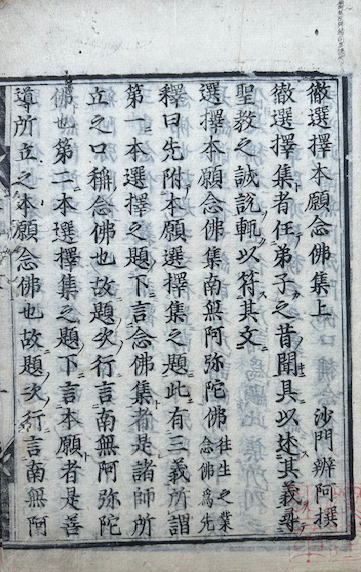 徹選擇本願念佛集上　沙門辨阿撰
徹選擇集者任弟子之昔聞具以述其義尋
聖教之誠說輒以符其文
選擇本願念佛集南無阿弥陀佛往生之業念佛為先
釋曰先附本願選擇集之題此有三義所謂
第一本選擇之題下言念佛集者是諸師所
立之口稱念佛也故題次行言南無阿弥陀
佛也第二本選擇集之題下言本願者是善
導所立之本願念佛也故題次行言南無阿